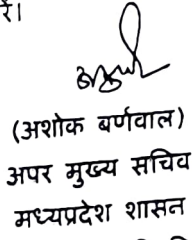 रें।
(अशोक बर्णवाल)
अपर मुख्य सचिव
मध्यप्रदेश शासन